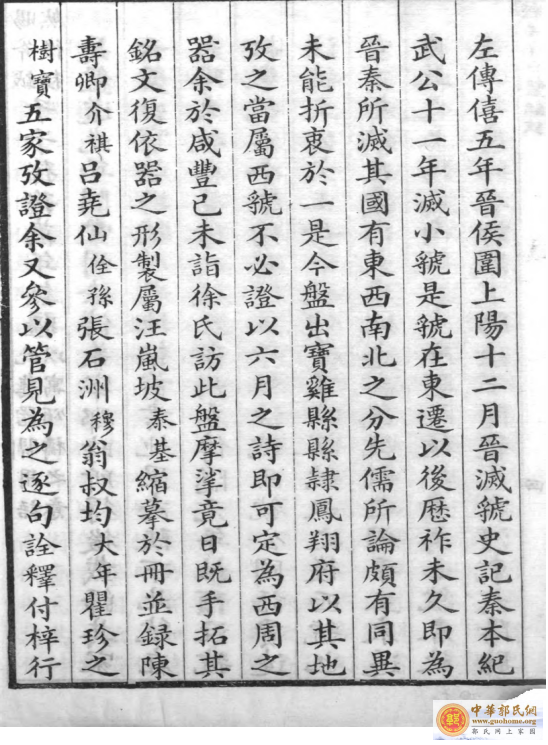 左傳僖五年晉侯圍上陽十二月晉滅虢史記秦本紀
武公十一年滅小虢是虢在東遷以後歷祚未久即為
晉秦所滅其國有東西南北之分先儒所論頗有同異
未能折衷於一是今盤出寶雞縣縣隸鳳翔府以其地
攷之當屬西虢不必證以六月之詩即可定為西周之
器余於咸豐己未詣徐氏訪此盤摩挲竟日既手拓其
銘文復依器之形製屬汪嵐坡泰基縮摹於冊並録陳
壽卿介祺呂堯仙佺孫張石洲穆翁叔均大年瞿珍之
樹寶五家攷證余又參以管見為之逐句詮釋付梓行
中華郭氏網
www.guohome.org
郭氏網上家園